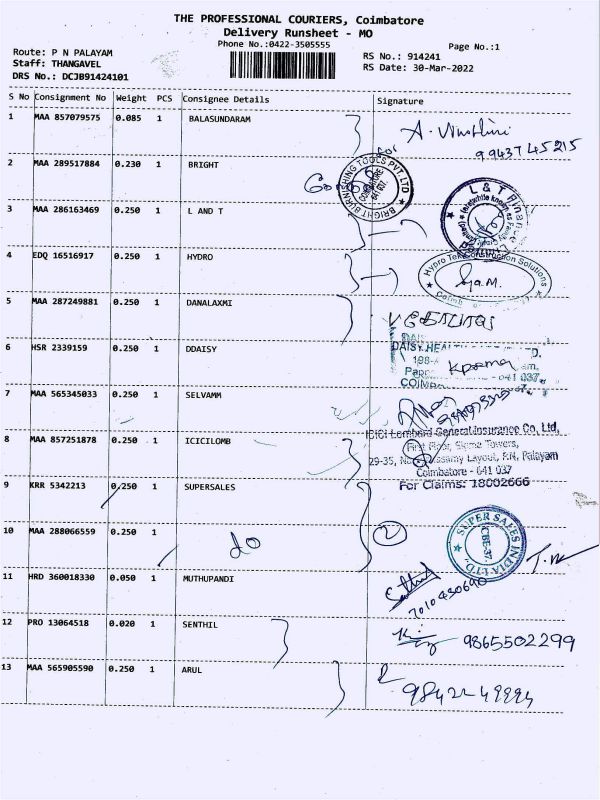 THE PROFESSIONAL COURIERS, Coimbatore
Delivery Runsheet - MO
Phone No.:0422-3505555
Page No.:1
Route: P N PALAYAM
Staff: THANGAVEL
DRS No.: DCJB91424101
RS No.: 914241
RS Date: 30-Mar-2022
S No Consignment No Weight PCS Consignee Details Signature
1 MAA 857079575 0.085 1 BALASUNDARAM
9943745215
2 MAA 289517884 0.230 1 BRIGHT
for
BRIGHT BURNISHING TOOLS PVT. LTD
COIMBATORE
641 037
3 MAA 286163469 0.250 1 L AND T
L & T Finance
4 EDQ 16516917 0.250 1 HYDRO
Hypro Tek Construction Solutions
5 MAA 287249881 0.250 1 DANALAXMI
6 HSR 2339159 0.250 1 DDAISY
DAISY HEA
COIMB
641 037
7 MAA 565345033 0.250 1 SELVAMM
8 MAA 857251878 0.250 1 ICICILOMB
ICICI Lombard General Insurance Co, Ltd,
First Floor, Towers,
29-35, Layout, P.N. Palayam
Coimbatore - 641 037
For Claims: 18002666
9 KRR 5342213 0.250 1 SUPERSALES
10 MAA 288066559 0.250 1 do
2
SUPER SALES INDIA LTD.,
CBE-37
11 HRD 360018330 0.050 1 MUTHUPANDI
12 PRO 13064518 0.020 1 SENTHIL
9865502299
13 MAA 565905590 0.250 1 ARUL